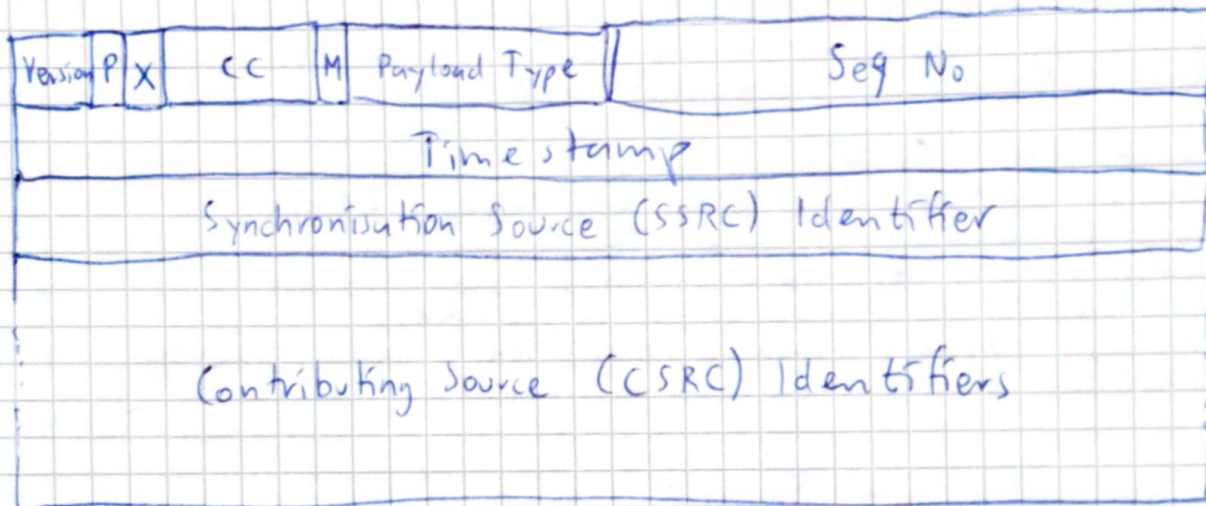 Version P X CC M Payload Type Seq No
Timestamp
Synchronisation Source (SSRC) Identifier
Contributing Source (CSRC) Identifiers